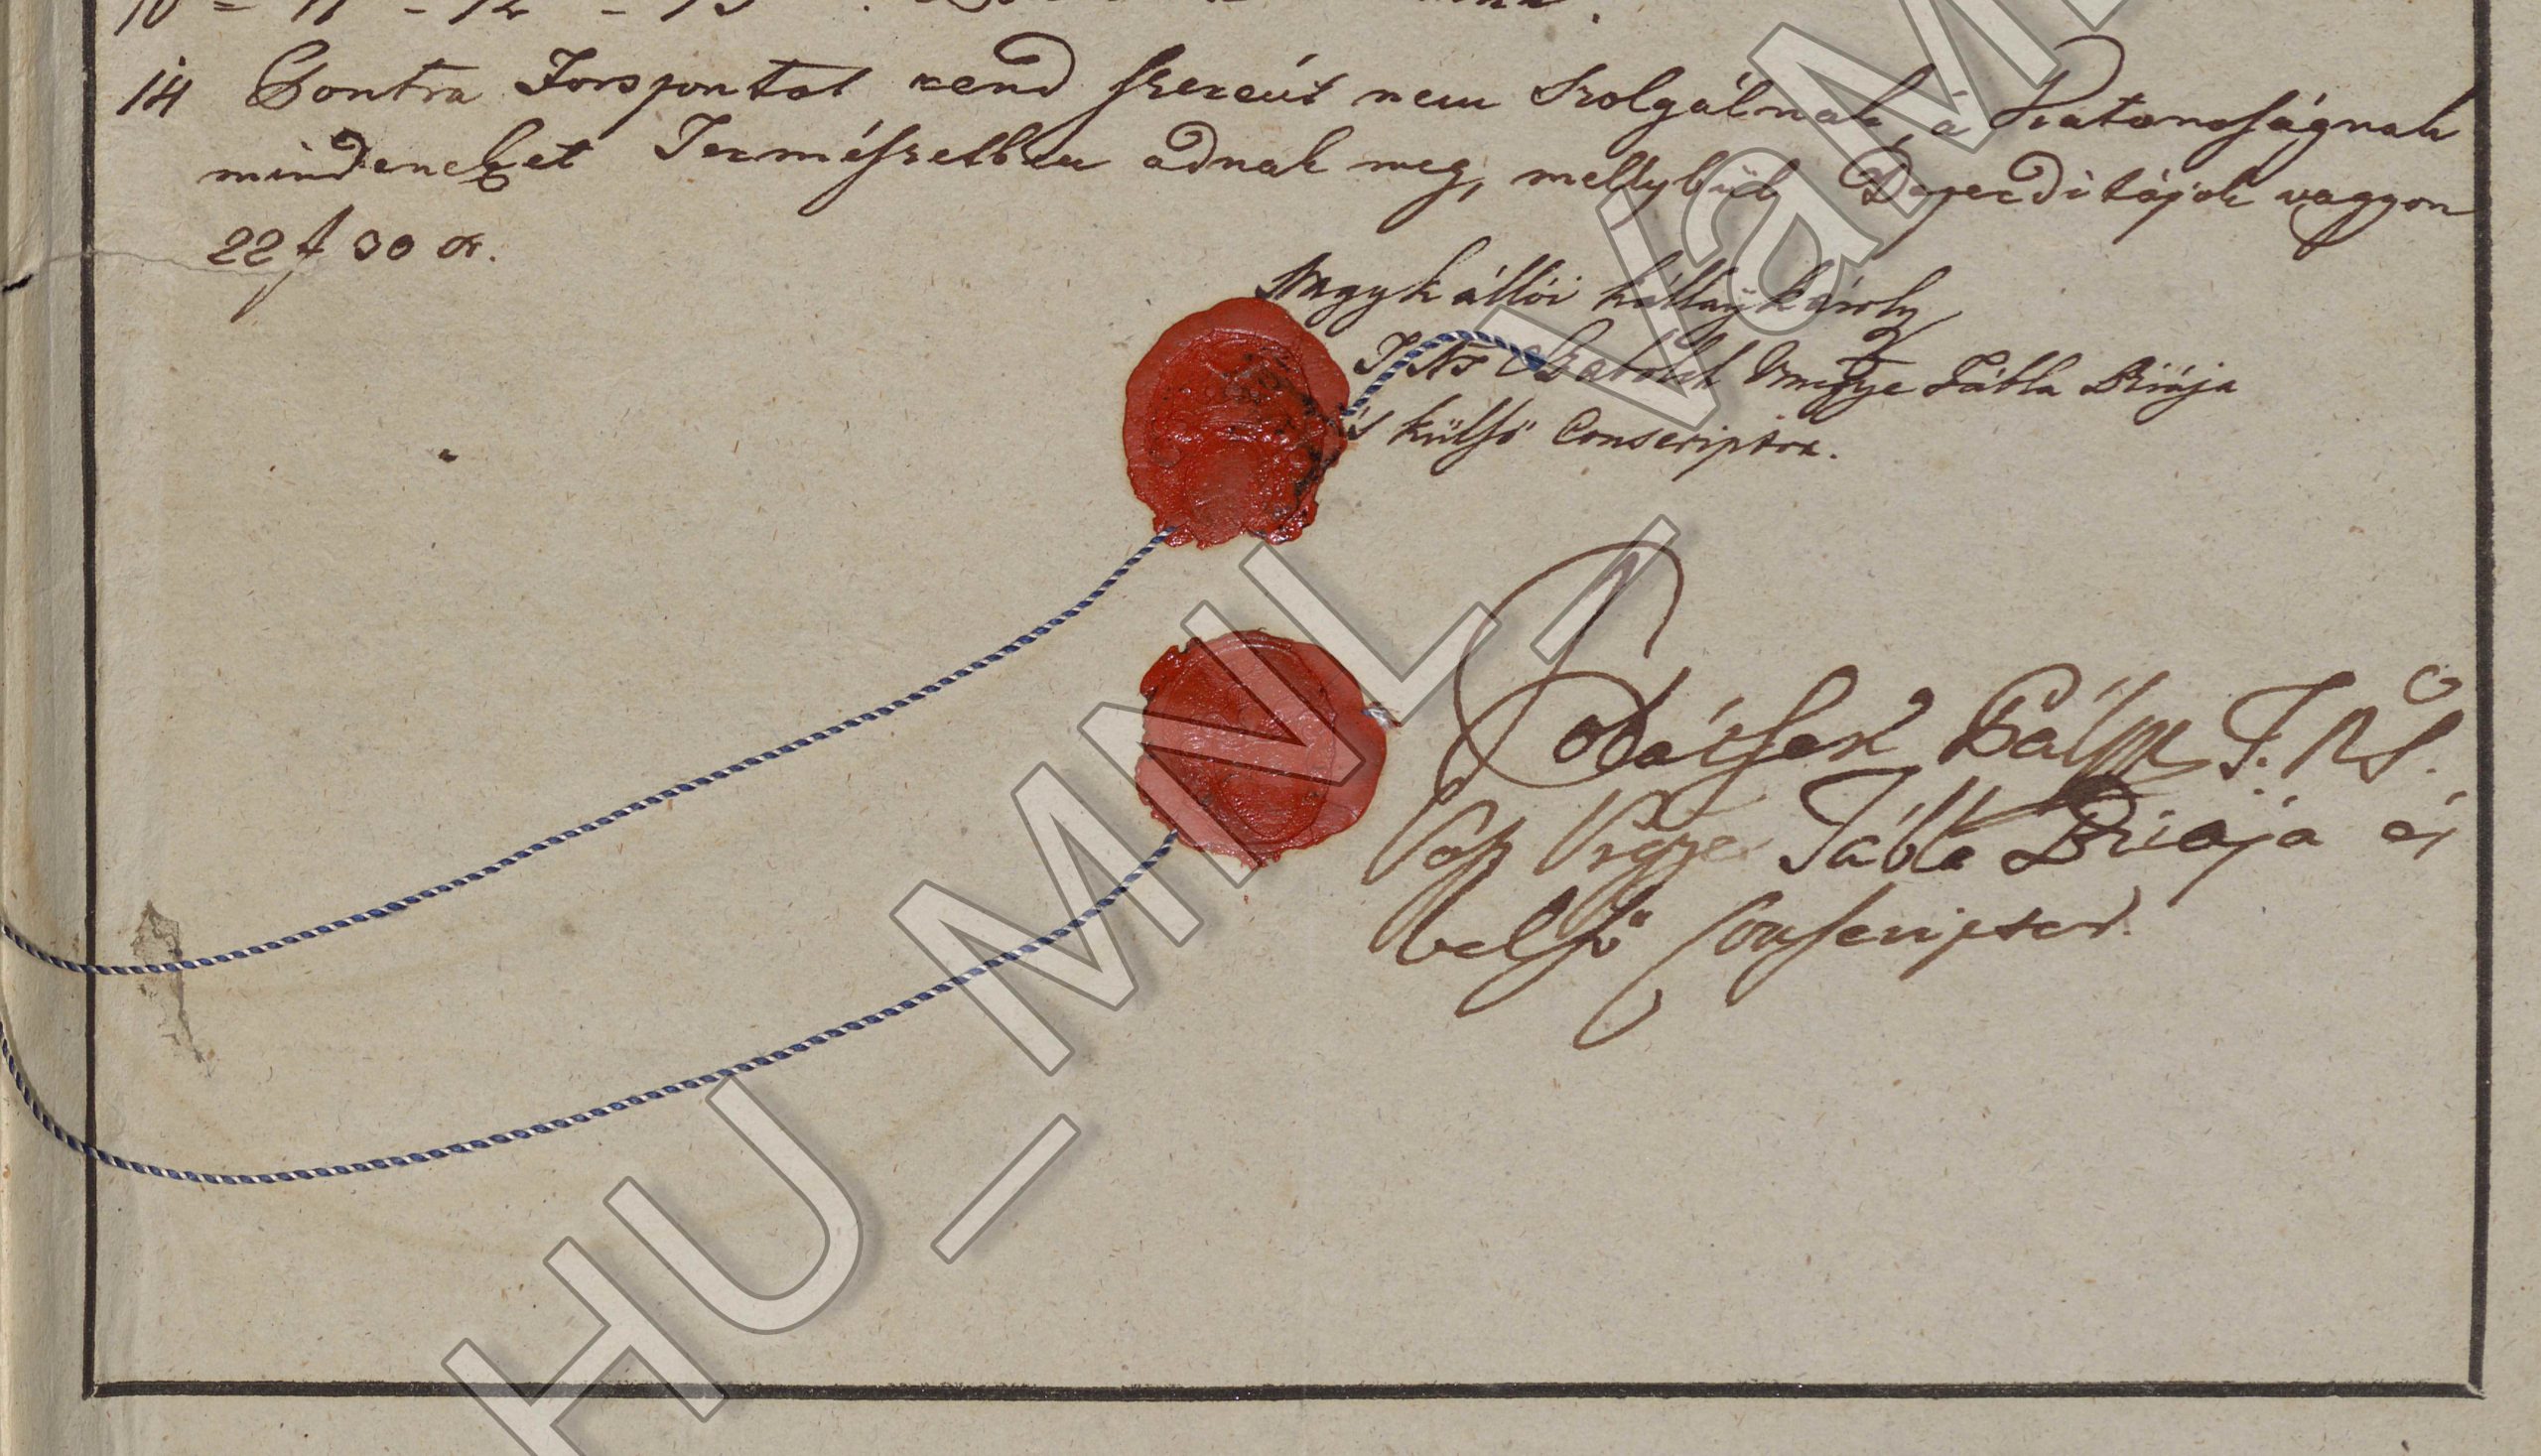 10 = 11 - 12 - 13
14 Contra Forspontot rend szerént nem szolgálnak, á Katonaságnak
mindeneket Természetben adnak meg, mellybül Deperditájok vaggyon
22 f 30 xr.
Nagy kállói kállay károly
T Ns Szabolch Vmegye Tábla Birája
és külsö Conscriptor.
Pál T. NS.
Vgye Tábla Birája és
belsö Conscriptor.
HU_MNL_VaM